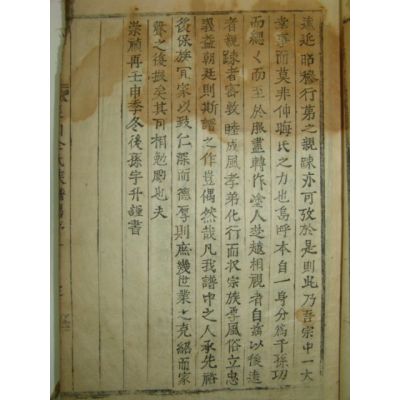 遠近昭穆行第之親疎亦可攷於是則此乃吾宗中一大
幸事而莫非仲晦氏之力也嗚呼本自一身分爲千孫功
而緦緦而至於服盡轉作塗人楚越相視者自茲以後遠
者親疎者密敦睦成風孝弟化行而扶宗族專風俗立忠
義益朝廷則斯譜之作豈偶然哉凡我譜中之人承先裕
後保族宜家以致仁深而德厚則庶幾世業之克紹而家
聲之復振矣其可相勉勵也夫
崇禎再壬申季冬後孫宇升謹書